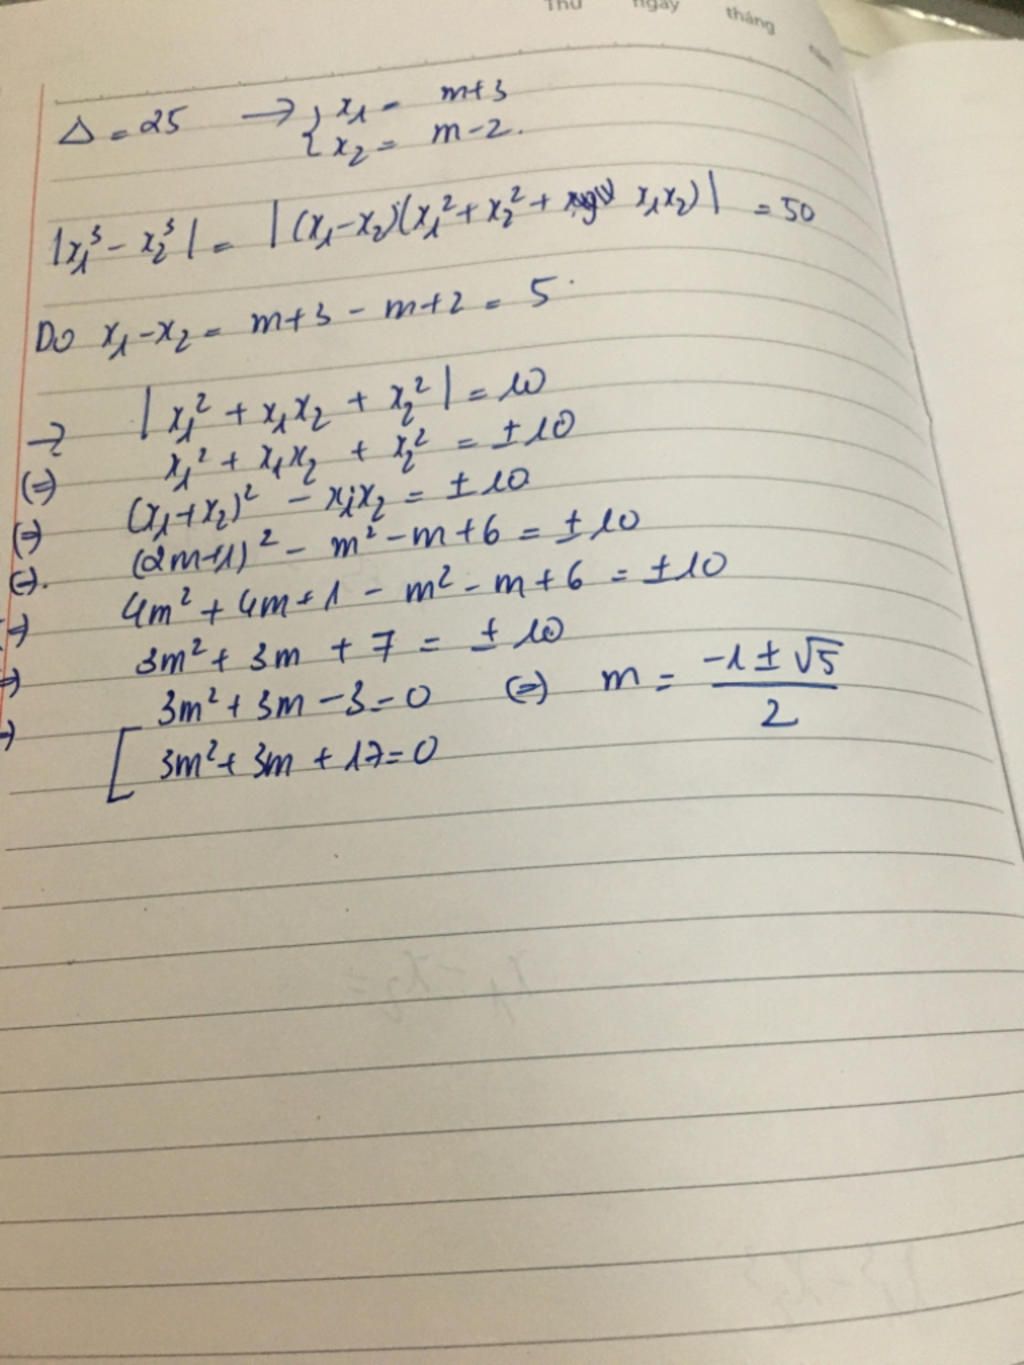 Thứ ngày tháng năm
Δ = 25 → { x₁ = m+3
x₂ = m-2.
|x₁³ - x₂³| = |(x₁-x₂)(x₁²+x₂²+ x₁x₂)| = 50
Do x₁-x₂ = m+3 - m+2 = 5
→ |x₁² + x₁x₂ + x₂²| = 10
(=) x₁² + x₁x₂ + x₂² = ±10
(=) (x₁+x₂)² - x₁x₂ = ±10
(=). (2m+1)² - m² - m + 6 = ±10
(=) 4m² + 4m + 1 - m² - m + 6 = ±10
(=) 3m² + 3m + 7 = ±10
(=) [ 3m² + 3m - 3 = 0 (=) m = (-1 ± √5)/2
3m² + 3m + 17 = 0